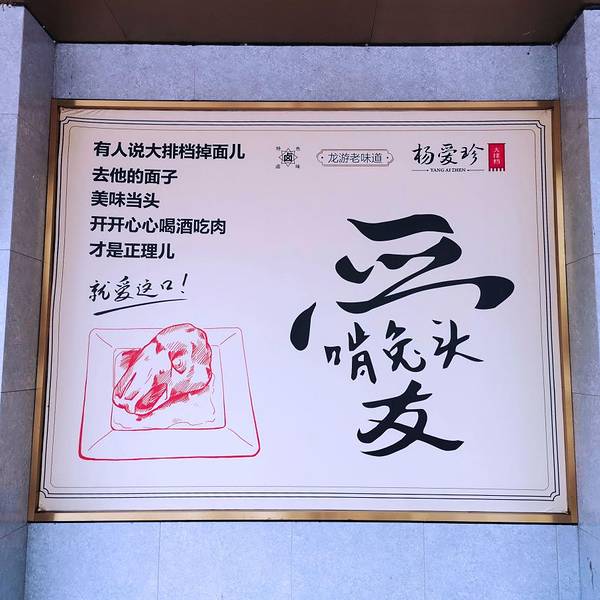 有人说大排档掉面儿
去他的面子
美味当头
开开心心喝酒吃肉
才是正理儿
就爱这口!
特色
卤
卤味
龙游老味道
杨爱珍
YANG AI ZHEN
大排档
爱
啃兔头
友